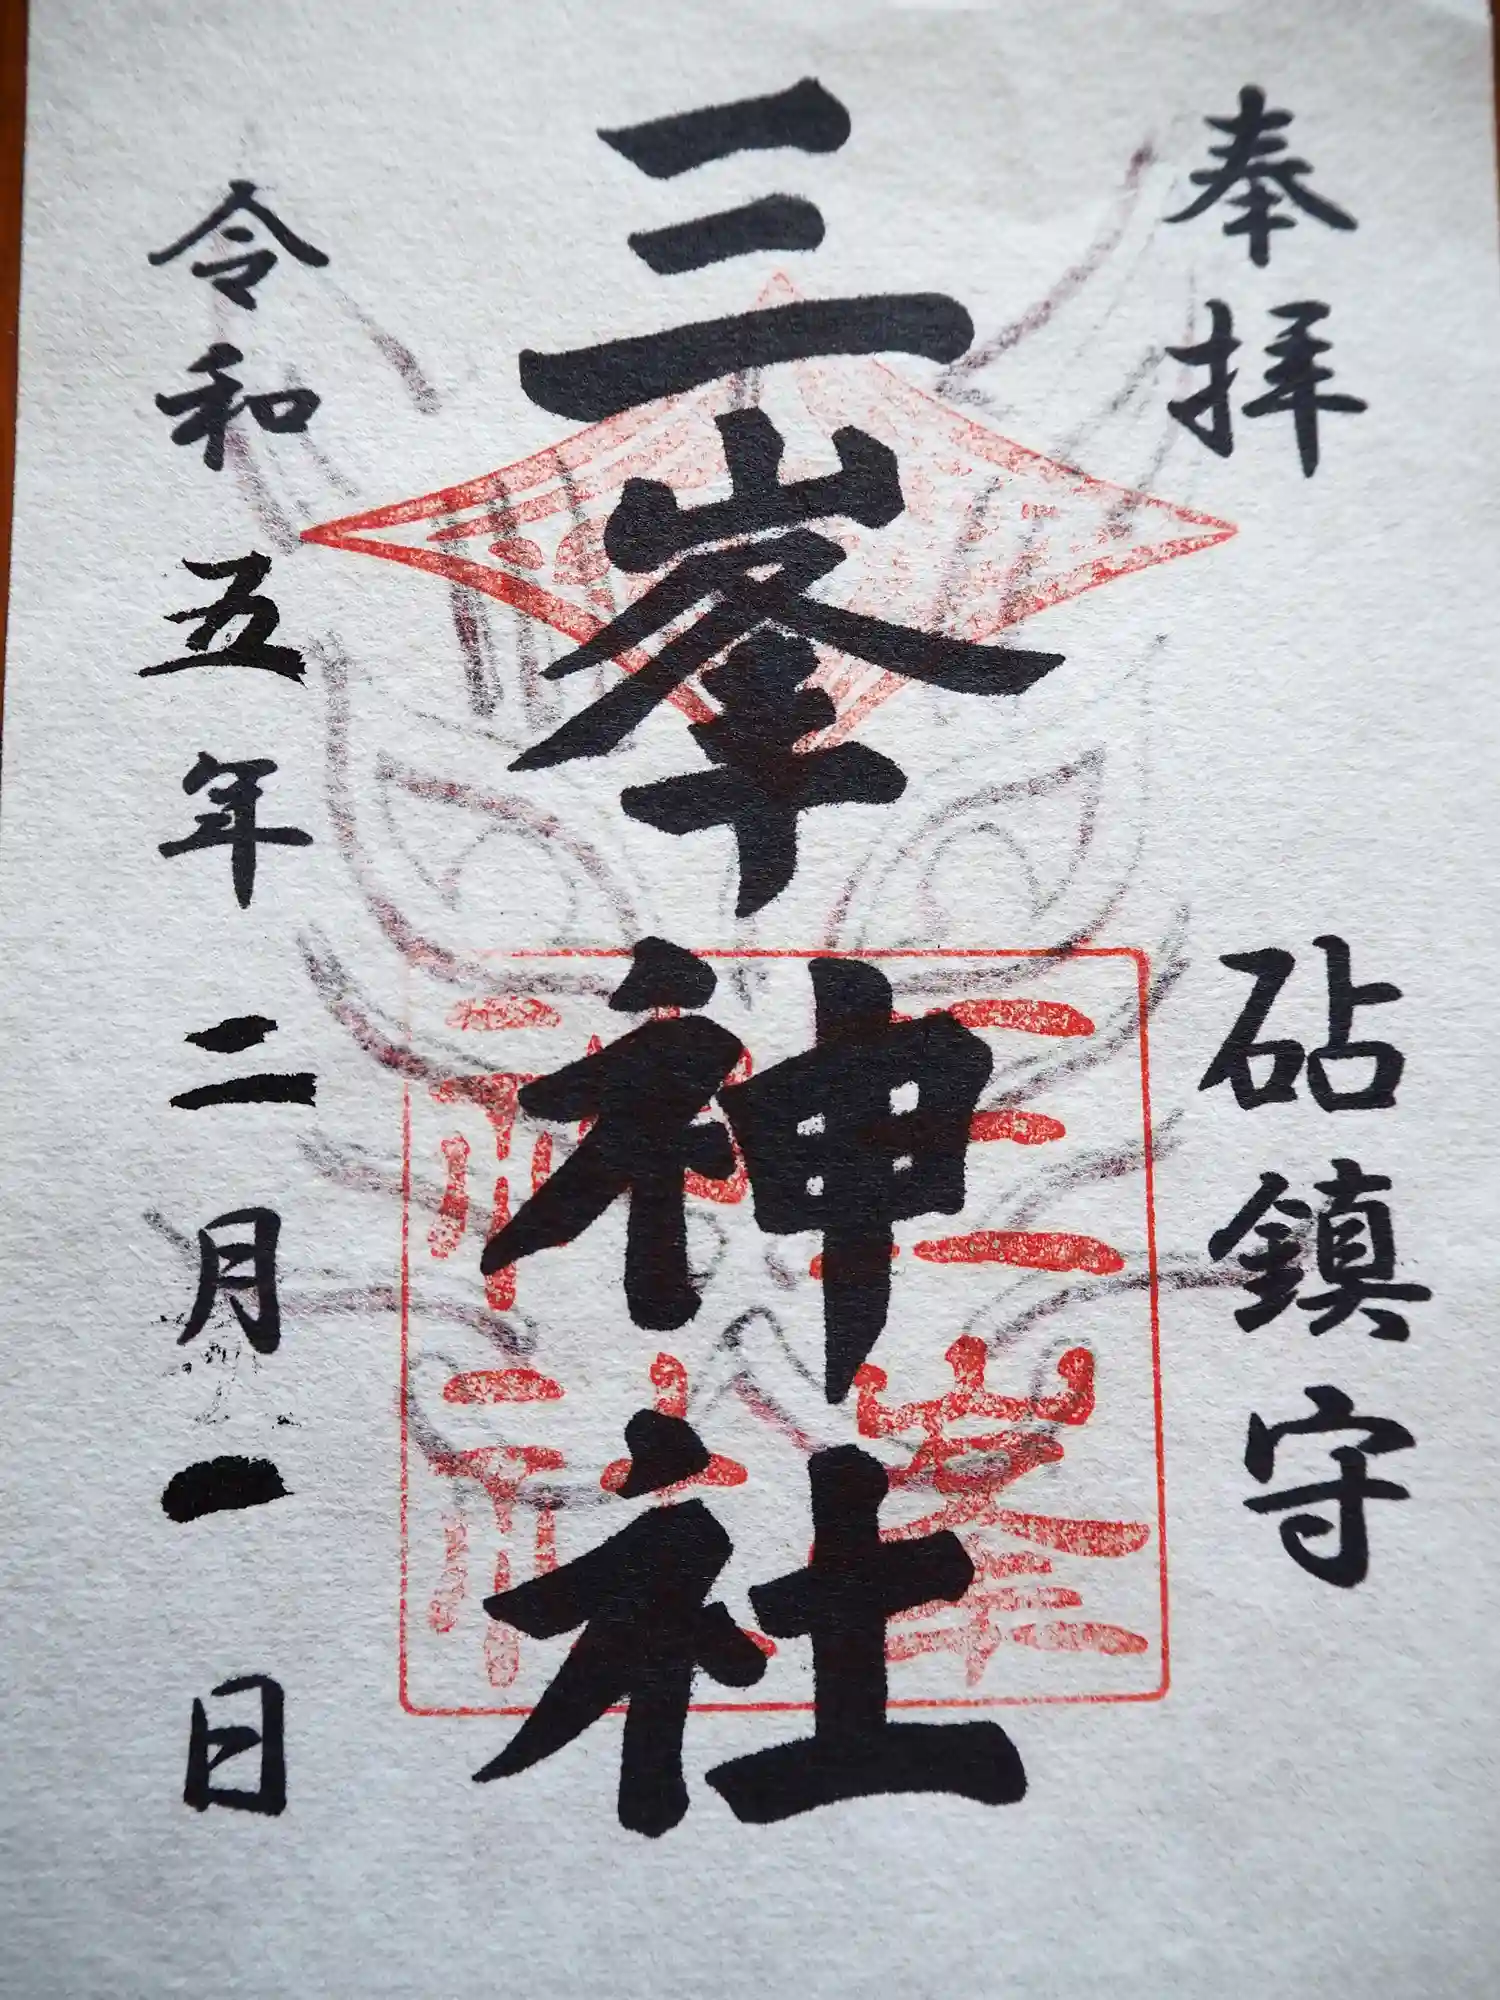 奉拝 砧鎮守
三峯神社
令和五年二月一日
三峯神社